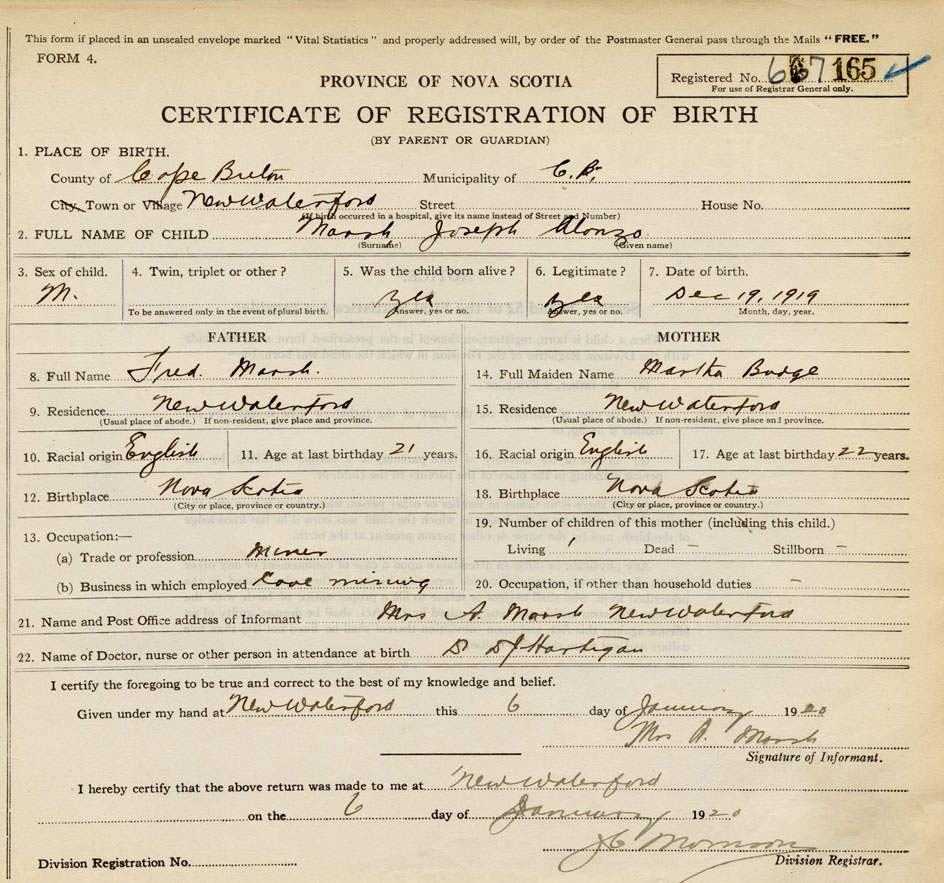 This form if placed in an unsealed envelope marked "Vital Statistics" and properly addressed will, by order of the Postmaster General pass through the Mails "FREE."
FORM 4.
Registered No. 667 165
For use of Registrar General only.
PROVINCE OF NOVA SCOTIA
CERTIFICATE OF REGISTRATION OF BIRTH
(BY PARENT OR GUARDIAN)
1. PLACE OF BIRTH.
County of Cape Breton Municipality of C.B.
City, Town or Village New Waterford Street House No.
(If birth occurred in a hospital, give its name instead of Street and Number)
2. FULL NAME OF CHILD Marsh Joseph Alonzo
(Surname) (Given name)
3. Sex of child. 4. Twin, triplet or other? 5. Was the child born alive? 6. Legitimate? 7. Date of birth.
M. Yea Yea Dec 19, 1919
To be answered only in the event of plural birth. Answer, yes or no. Answer, yes or no. Month, day, year.
FATHER MOTHER
8. Full Name Fred. Marsh. 14. Full Maiden Name Martha Budge
9. Residence New Waterford 15. Residence New Waterford
(Usual place of abode.) If non-resident, give place and province. (Usual place of abode.) If non-resident, give place and province.
10. Racial origin English 11. Age at last birthday 21 years. 16. Racial origin English 17. Age at last birthday 22 years.
12. Birthplace Nova Scotia 18. Birthplace Nova Scotia
(City or place, province or country.) (City or place, province or country.)
13. Occupation:— 19. Number of children of this mother (including this child.)
(a) Trade or profession Miner Living 1 Dead – Stillborn –
(b) Business in which employed mining 20. Occupation, if other than household duties –
21. Name and Post Office address of Informant Mrs A. Marsh New Waterford
22. Name of Doctor, nurse or other person in attendance at birth Hartigan
I certify the foregoing to be true and correct to the best of my knowledge and belief.
Given under my hand at New Waterford this 6 day of January 1920
Mrs A. Marsh
Signature of Informant.
I hereby certify that the above return was made to me at New Waterford
on the 6 day of January 1920
Division Registration No. Division Registrar.